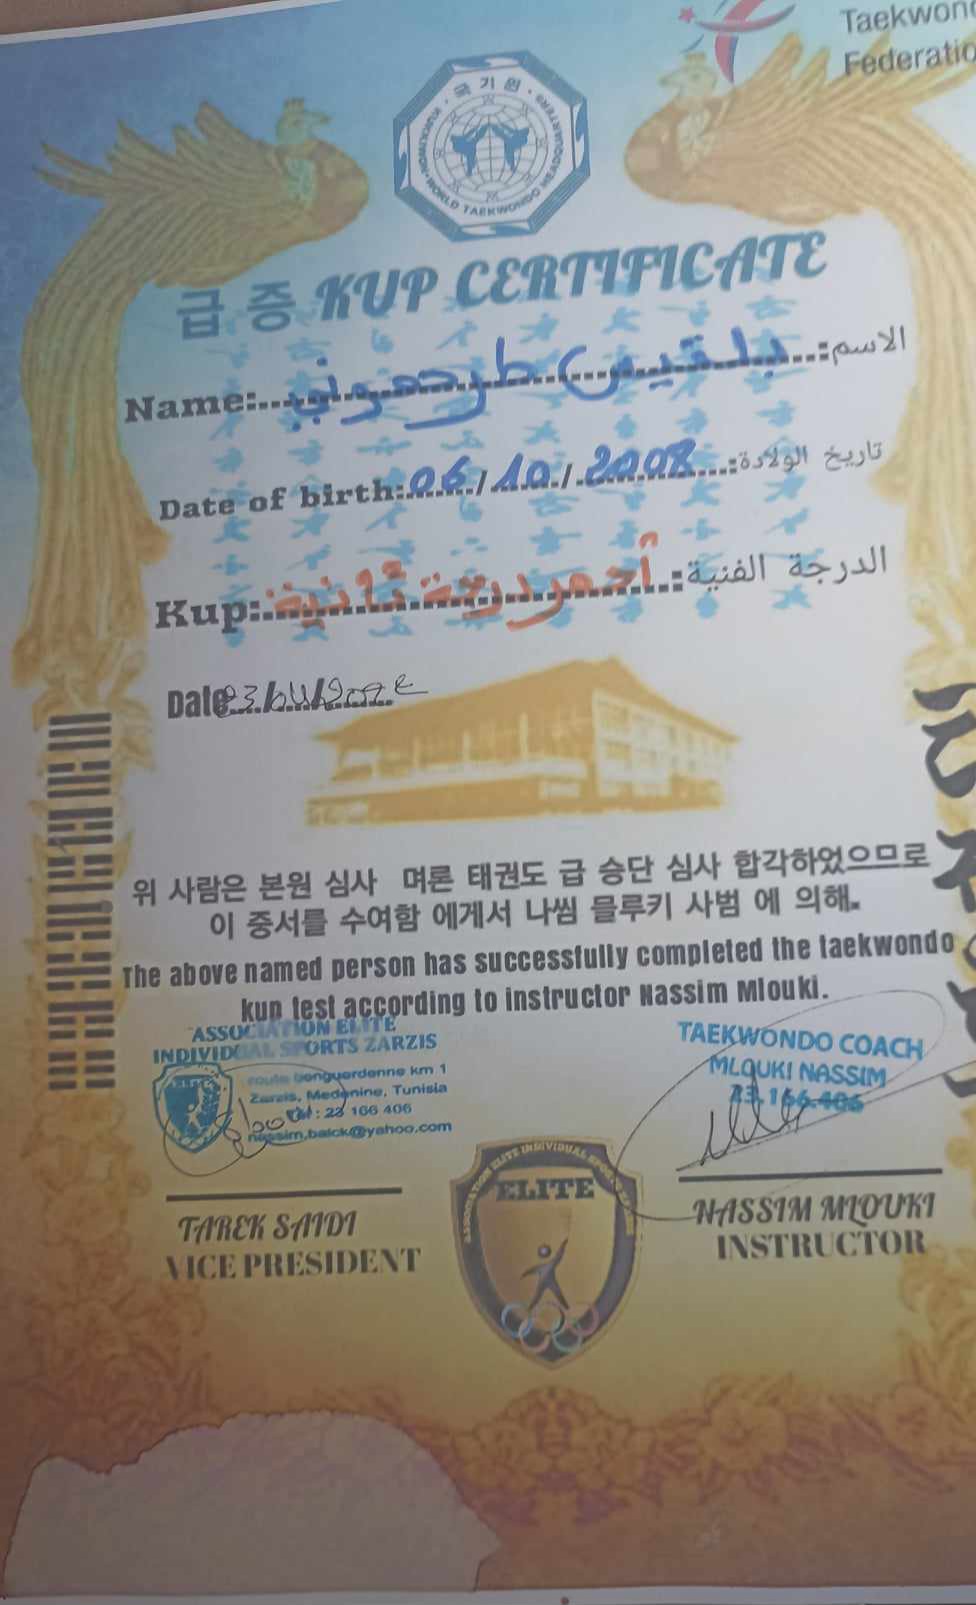 Taekwondo
Federatio
국기원
KUKKIWON · WORLD TAEKWONDO HEADQUARTERS
급 증 KUP CERTIFICATE
Name: بلقيس طرحوني :الاسم
Date of birth: 06/10/2008 :تاريخ الولادة
Kup: أحمر درجة ثانية :الدرجة الفنية
Date 23/04/202
위 사람은 본원 심사 며론 태권도 급 승단 심사 합각하었으므로
이 중서를 수여함 에게서 나씸 믈루키 사범 에 의해.
The above named person has successfully completed the taekwondo
kup test according to instructor Nassim Mlouki.
ASSOCIATION ELITE
INDIVIDUAL SPORTS ZARZIS
route benguerdenne km 1
Zarzis, Medenine, Tunisia
Tel : 23 166 406
nassim.balck@yahoo.com
TAEKWONDO COACH
MLOUKI NASSIM
23.166.406
ASSOCIATION ELITE INDIVIDUAL SPORTS
ELITE
TAREK SAIDI
VICE PRESIDENT
NASSIM MLOUKI
INSTRUCTOR